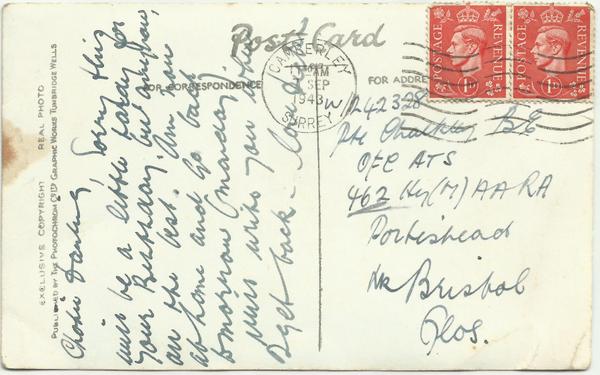 Post Card
FOR CORRESPONDENCE
FOR ADDRE
CAMBERLEY
AM
SEP
1943
SURREY
POSTAGE
REVENUE
1D
POSTAGE
REVENUE
1D
EXCLUSIVE COPYRIGHT REAL PHOTO
PUBLISHED BY THE PHOTOCHROM CO LTD GRAPHIC WORKS TUNBRIDGE WELLS
Darling, Sorry this
will be a little late for
your Birthday, but anyhow
all the best. Am now
at home and go back
tomorrow (Monday)
will write you when
I get back.
W/242328
Pte Chalkley B E
O/C ATS
462 Hy(M) AA RA
Portishead
Nr Bristol
Glos.